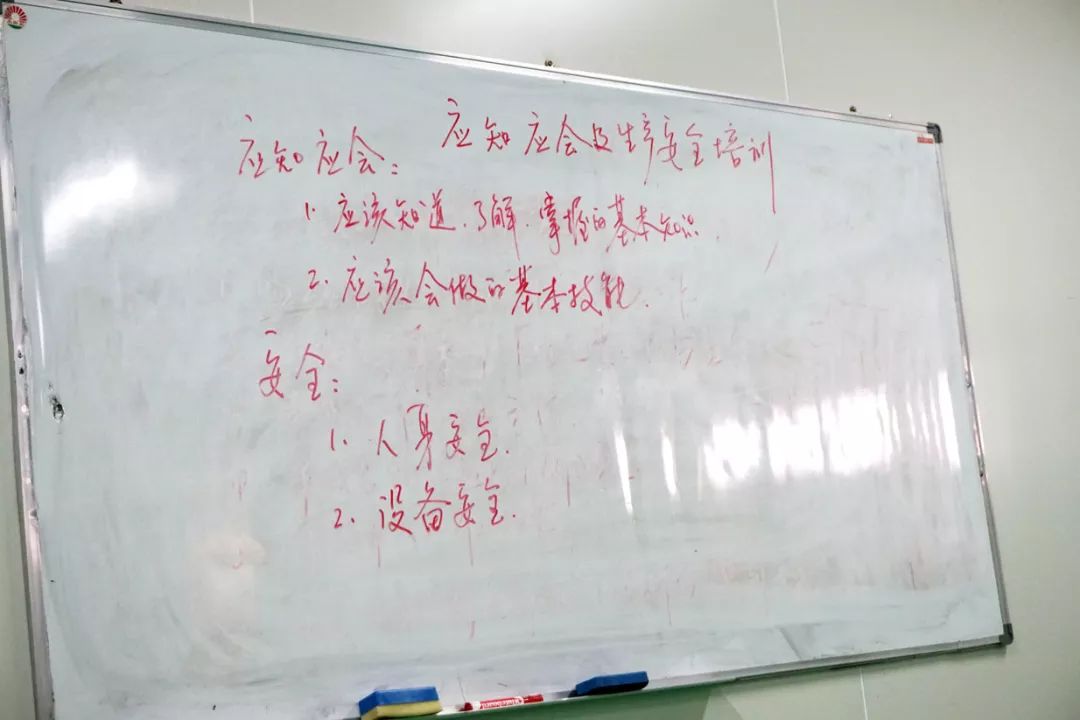 应知应会及生产安全培训
应知应会：
1. 应该知道、了解、掌握的基本知识.
2. 应该会做的基本技能.
安全：
1. 人身安全.
2. 设备安全.